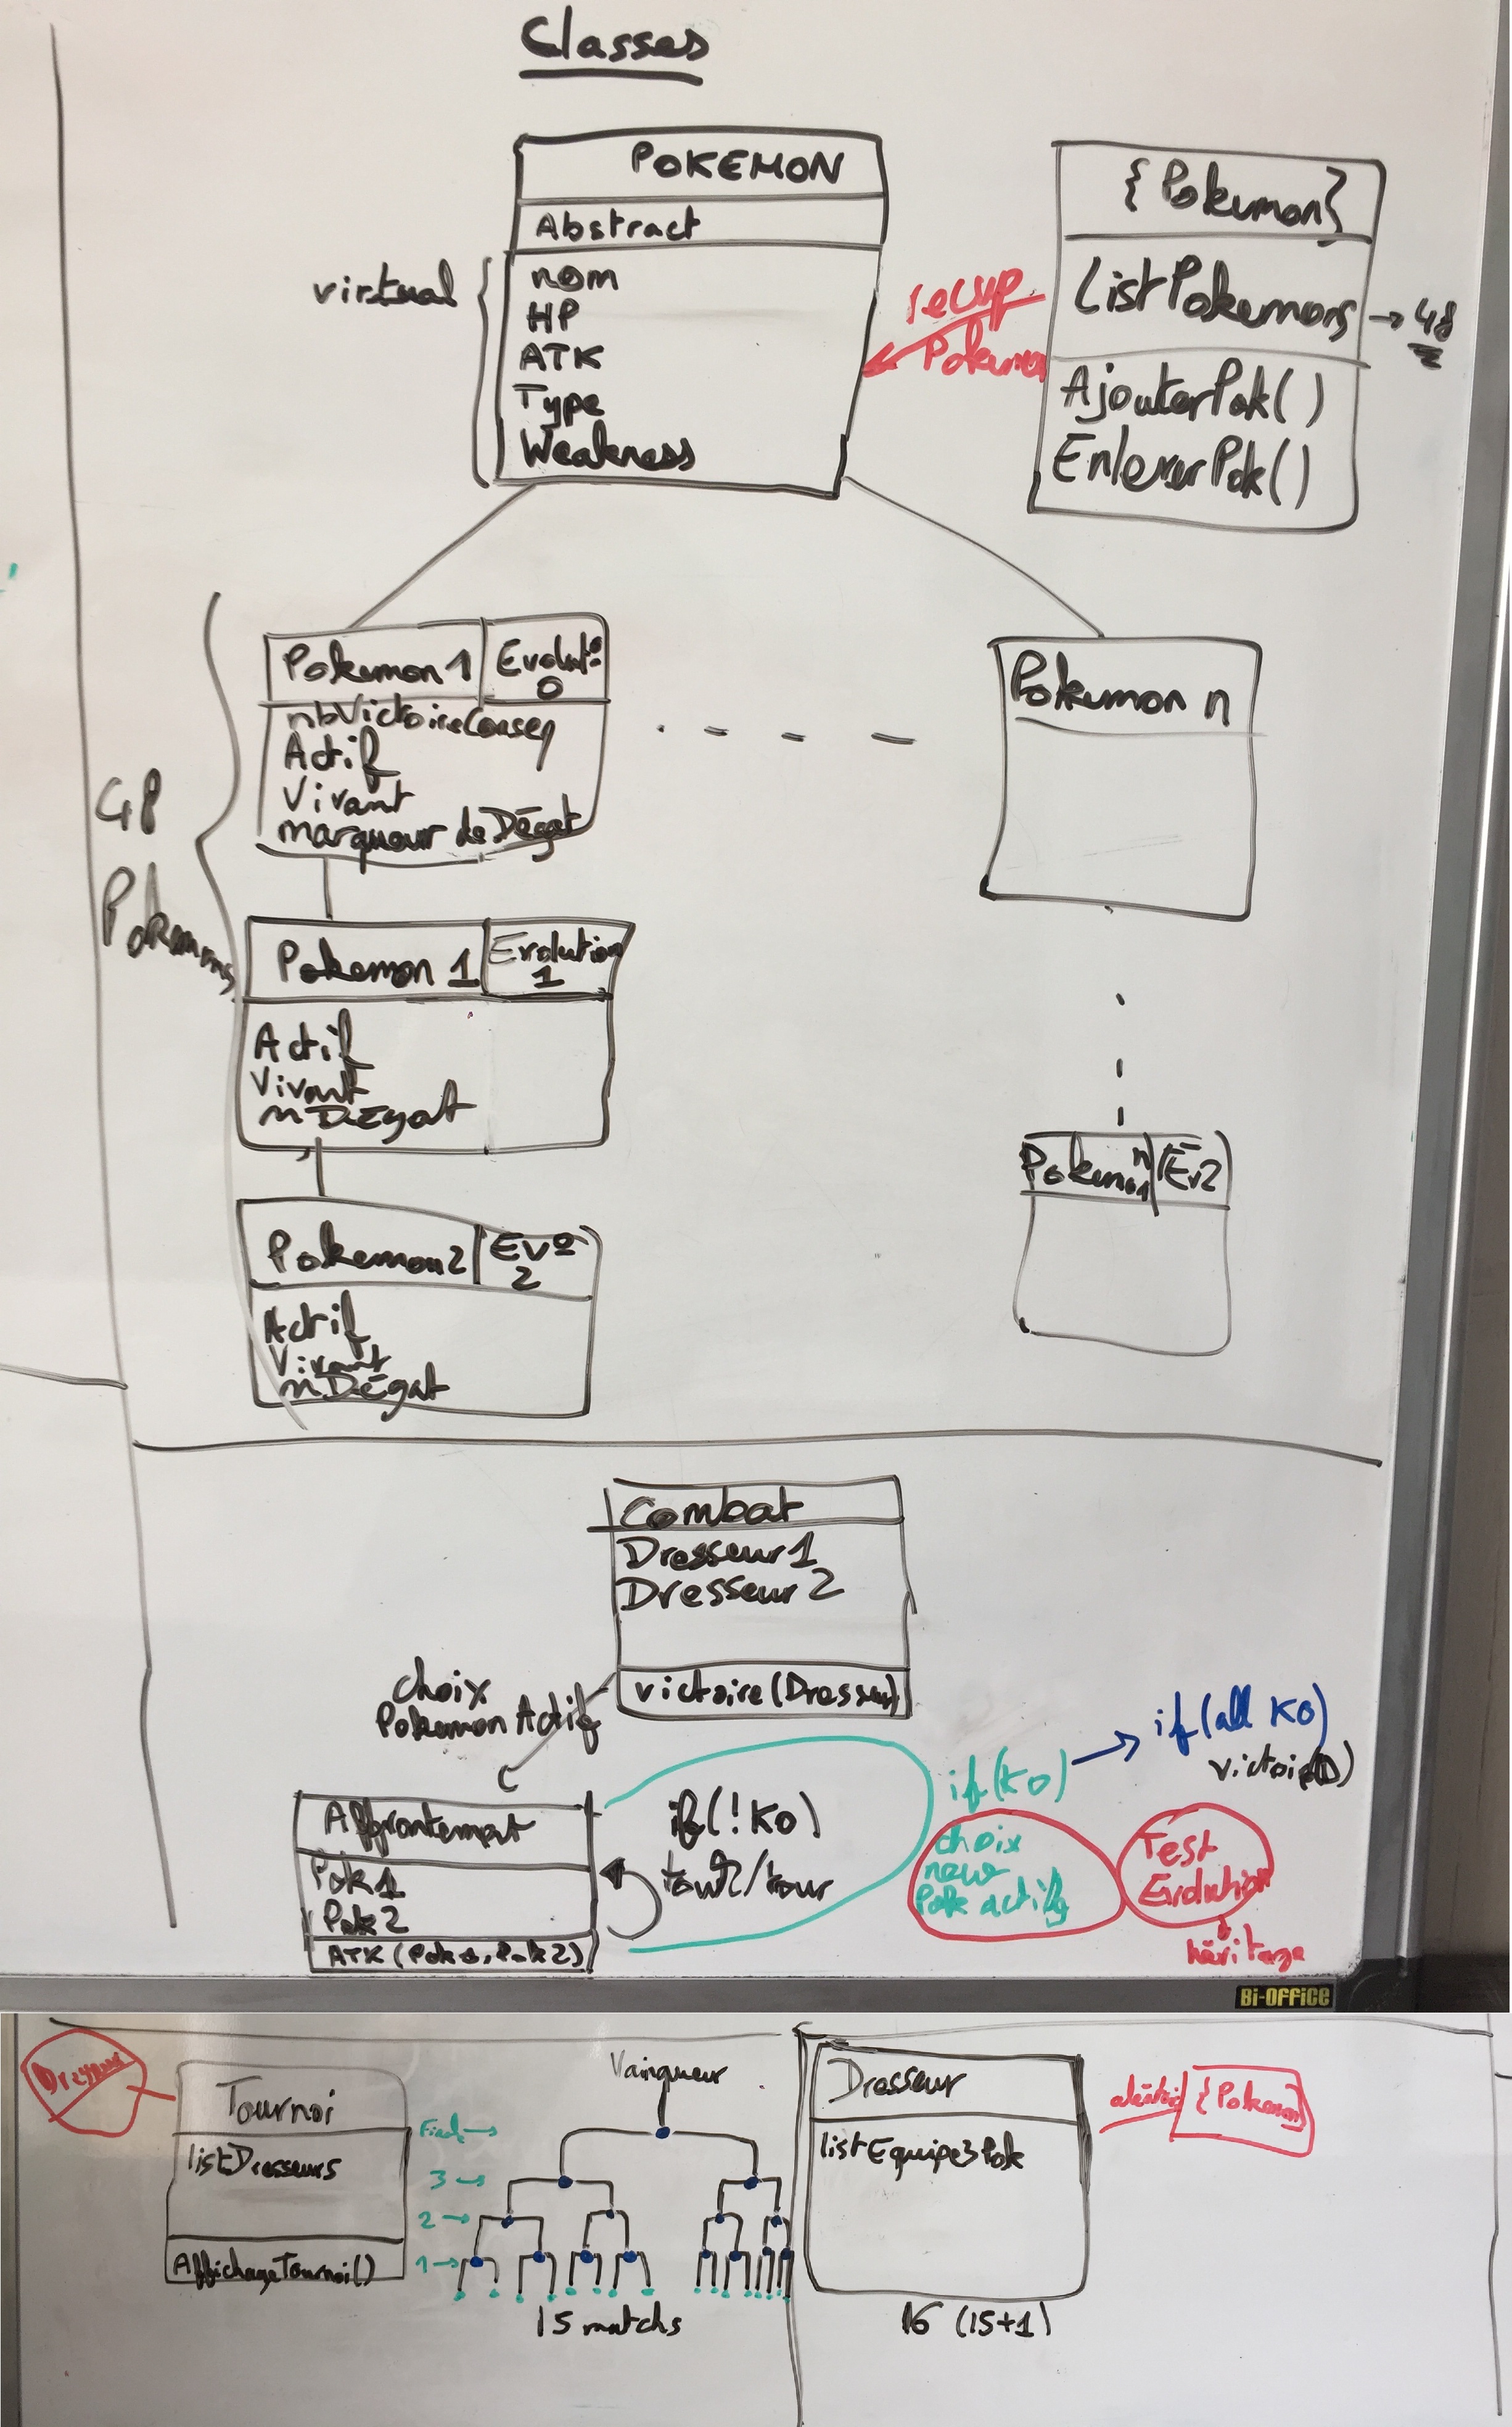 Classes
POKEMON
Abstract
virtual
nom
HP
ATK
Type
Weakness
{Pokemon}
ListPokemons → 48
AjouterPok()
EnleverPok()
recup
Pokemon
48
Pokemons
Pokemon 1
Evolut°
0
nbVictoireConseq
Actif
Vivant
marqueur de Dégat
Pokemon n
Pokemon 1
Evolution
1
Actif
Vivant
mDégat
Pokemon
n
Ev2
Pokemon 2
Ev°
2
Actif
Vivant
mDégat
Combat
Dresseur 1
Dresseur 2
victoire(Dresseur)
choix
Pokemon Actif
Affrontement
Pok1
Pok2
ATK (Pok1, Pok2)
if(!KO)
tour/tour
if(KO)
if(all KO)
victoire(D)
choix
new
Pok actif
Test
Evolution
héritage
Bi-OFFiCE
Dresseur
Tournoi
listDresseurs
AffichageTournoi()
Vainqueur
Finale →
3 →
2 →
1 →
15 matchs
Dresseur
listEquipe3Pok
16 (15+1)
{Pokemon}